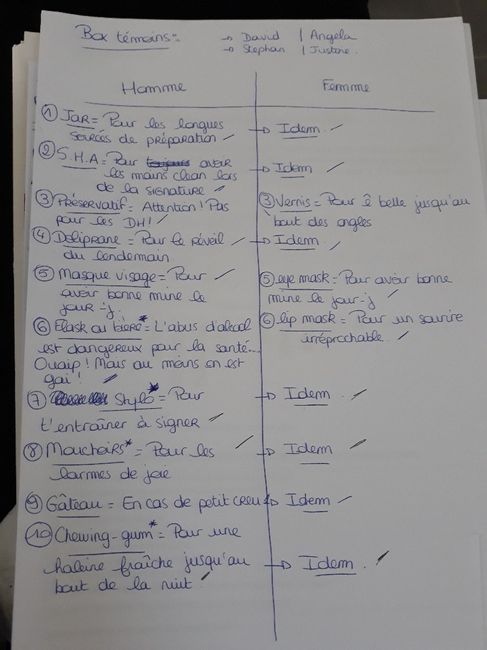 Box témoins :  → David | Angela
→ Stephan | Justine.
Homme
Femme
① JAR = Pour les longues
soirées de préparation
→ Idem
② S.H.A = Pour avoir
les mains clean lors
de la signature
→ Idem
③ Préservatif = Attention ! Pas
pour les DH !
③ Vernis = Pour ê belle jusqu'au
bout des ongles
④ Doliprane = Pour le réveil
du lendemain
→ Idem
⑤ Masque visage = Pour
avoir bonne mine le
jour -j
⑤ eye mask = Pour avoir bonne
mine le jour-j
⑥ Flask ou bière* = L'abus d'alcool
est dangereux pour la santé...
Ouaip ! Mais au moins on est
gai !
⑥ lip mask = Pour un sourire
irréprochable.
⑦ Stylo* = Pour
t'entraîner à signer
→ Idem
⑧ Mouchoirs* = Pour les
larmes de joie
→ Idem
⑨ Gâteau = En cas de petit creux
→ Idem
⑩ Chewing-gum* = Pour une
haleine fraîche jusqu'au
bout de la nuit
→ Idem.